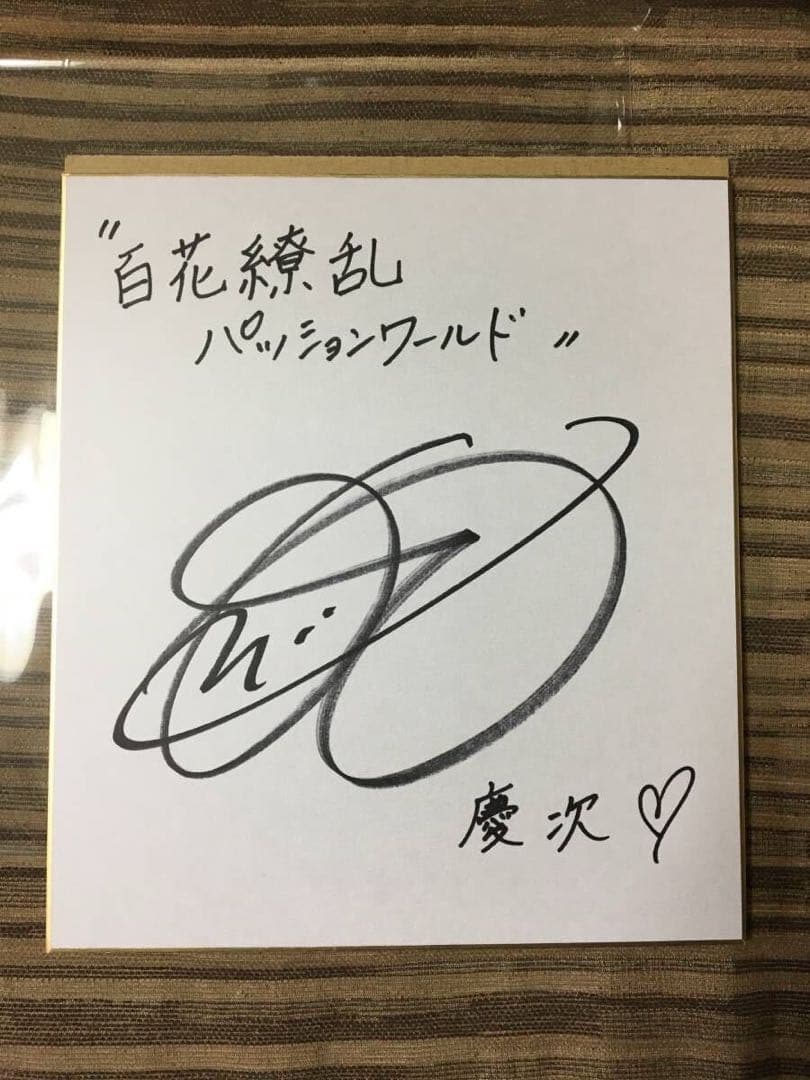 〃百花繚乱
パッションワールド〃
慶次♡